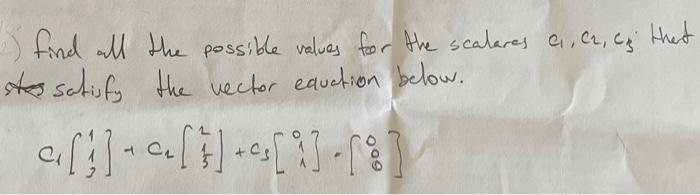 ) find all the possible values for the scalares c1, c2, c3 that
satisfy the vector equation below.
c1 [1 1 2] + c2 [2 1 3] + c3 [0 1 1] = [0 0 0]